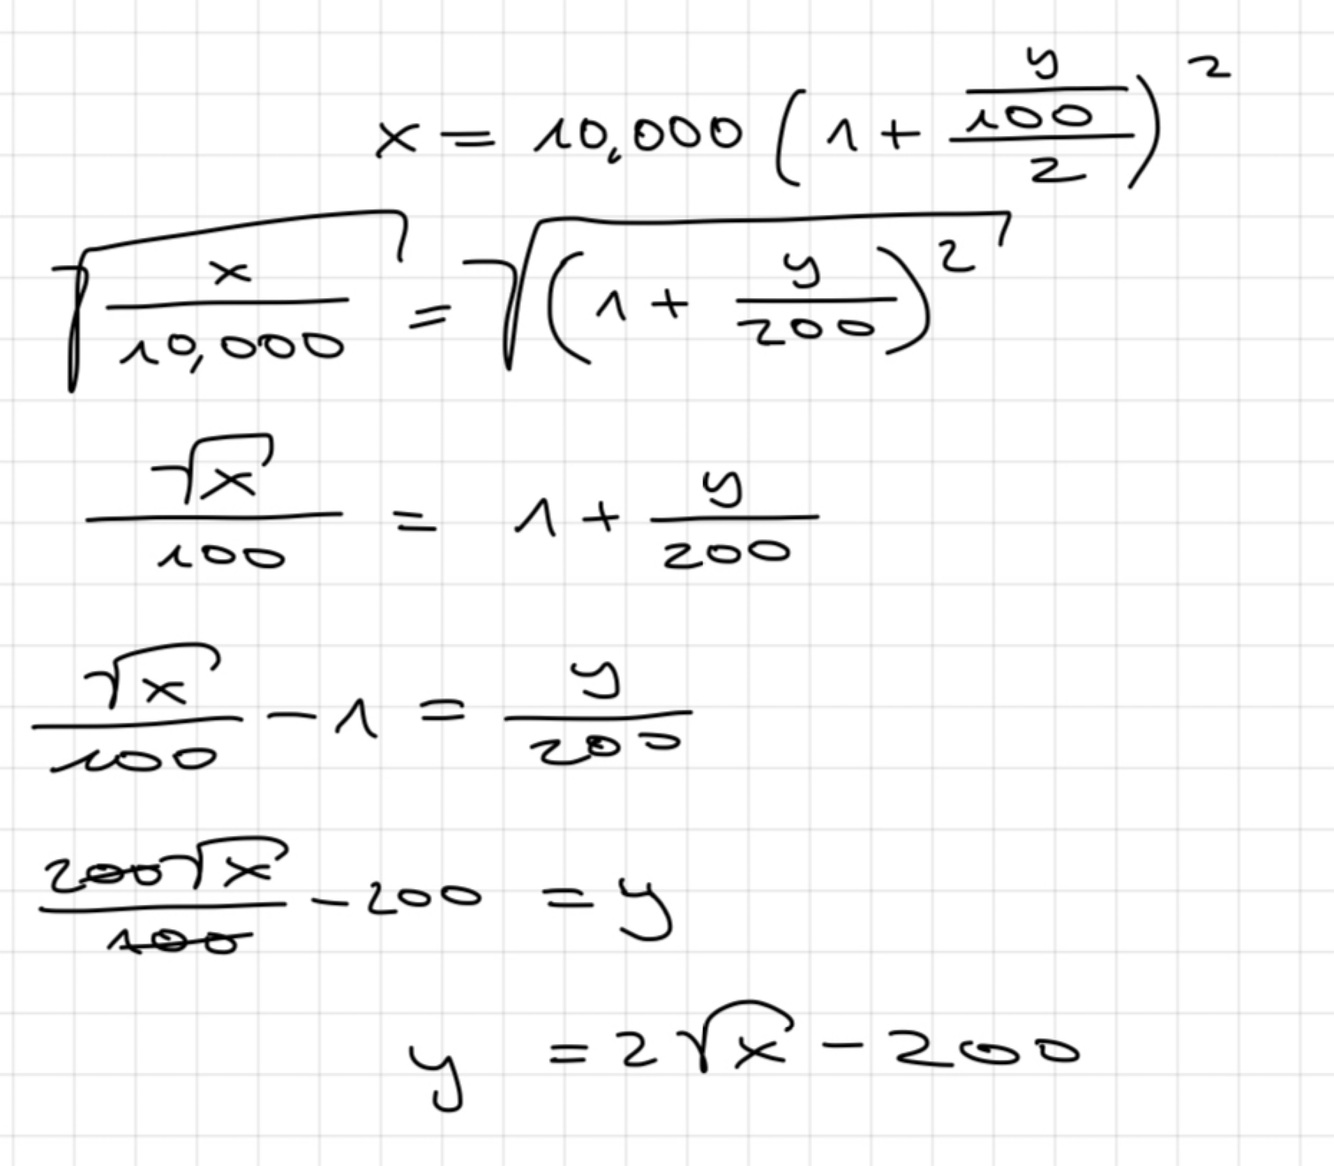 x = 10,000 (1 + ((y/100)/2))²
√(x/10,000) = √((1 + y/200)²)
√x/100 = 1 + y/200
√x/100 - 1 = y/200
200√x/100 - 200 = y
y = 2√x - 200